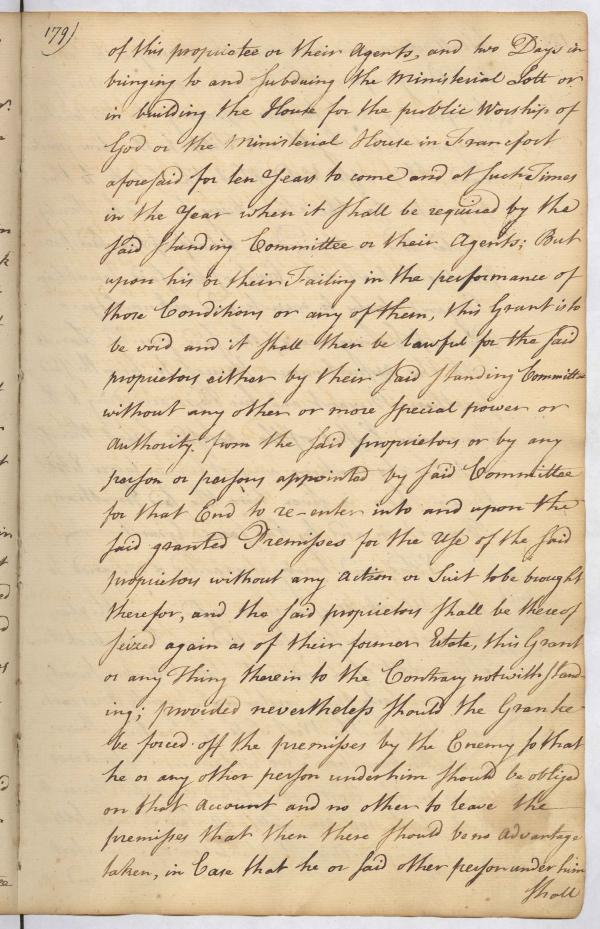 179)
of this propriatee or their Agents, and two Days in
bringing to and subduing the Ministerial Lott or
in building the House for the public Worship of
God or the Ministerial House in Francfort
aforesaid for ten Years to come and at such Times
in the Year when it shall be required by the
said standing Committee or their Agents; But
upon his or their Failing in the performance of
those Conditions or any of them, this Grant is to
be void and it shall then be lawful for the said
proprietors either by their said standing Committee
without any other or more special power or
authority from the said proprietors or by any
person or persons appointed by said Committee
for that End to re-enter into and upon the
said granted Premisses for the Use of the said
proprietors without any action or Suit to be brought
therefor, and the said proprietors shall be thereof
seized again as of their former Estate, this Grant
or any Thing therein to the Contrary notwithstand-
ing; provided nevertheless should the Grantee
be forced off the premisses by the Enemy so that
he or any other person under him should be obliged
on that account and no other to leave the
premisses that then there should be no advantage
taken, in Case that he or said other person under him
shall